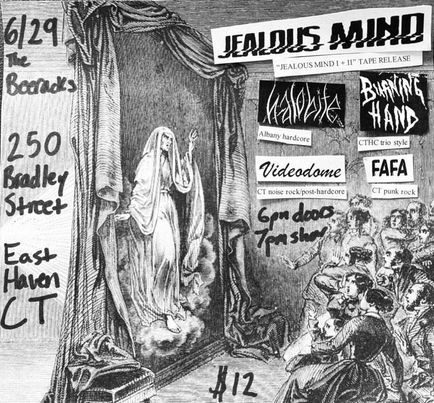 6/29
The
Beeracks
250
Bradley
Street
East
Haven
CT
JEALOUS MIND
"JEALOUS MIND I + II" TAPE RELEASE
Albany hardcore
BURNING
HAND
CTHC trio style
Videodome
CT noise rock/post-hardcore
FAFA
CT punk rock
6pm doors
7pm show
$12